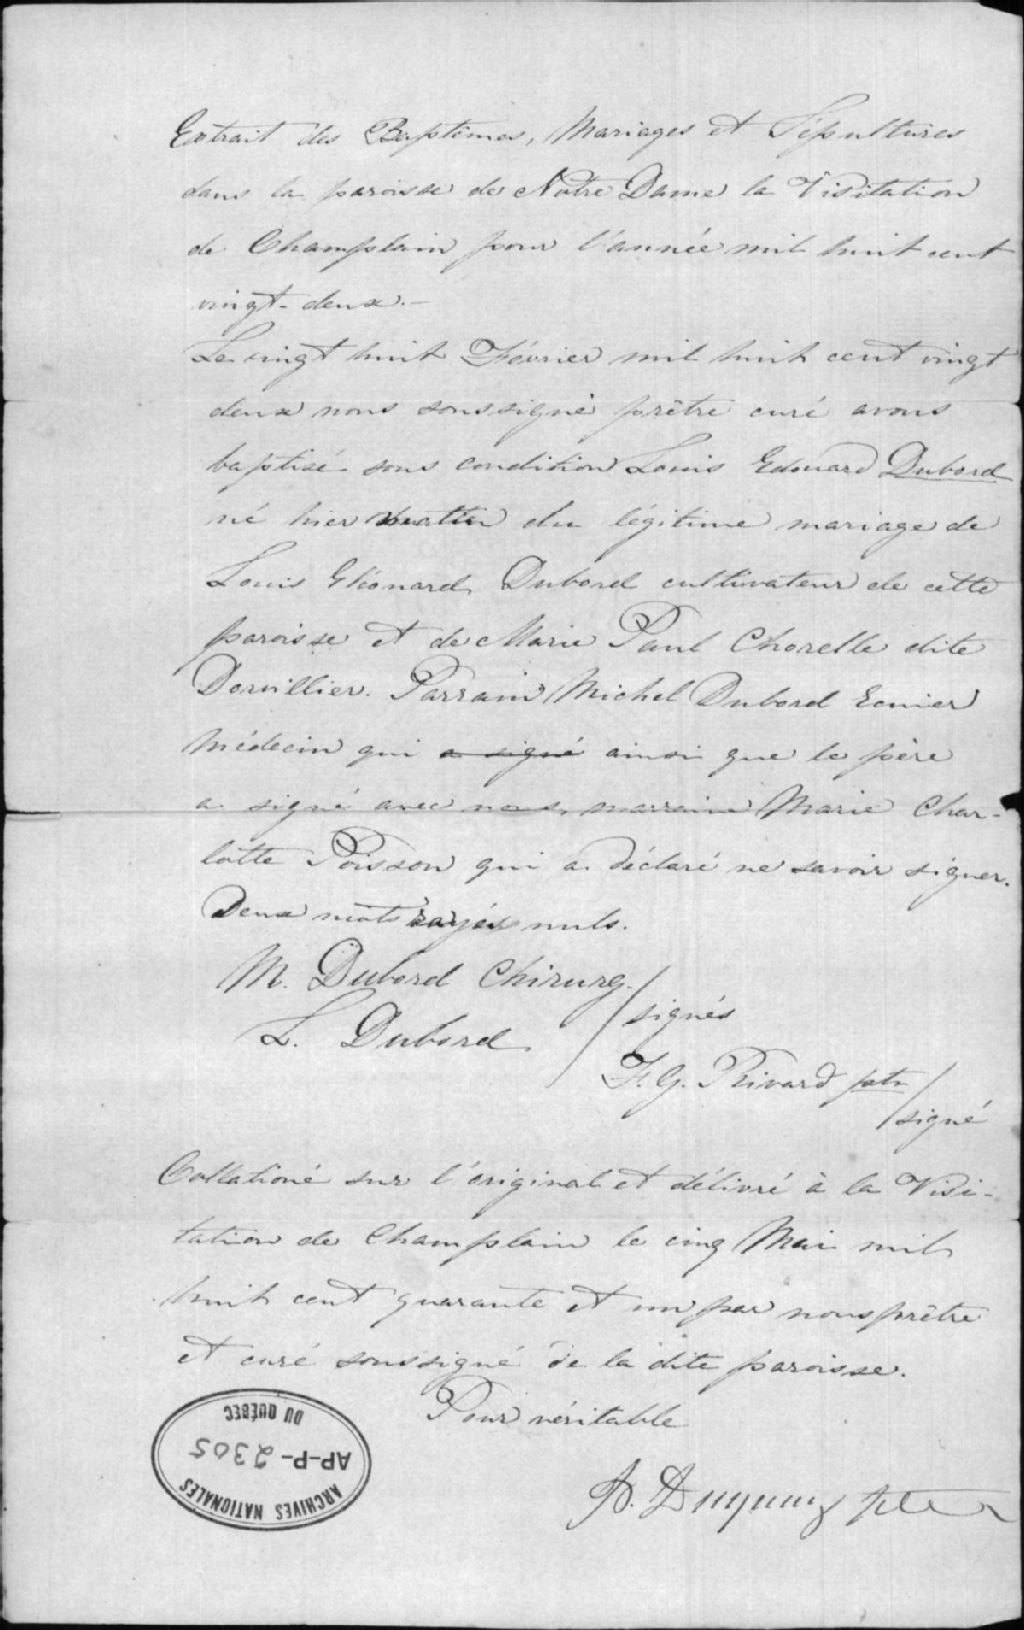 Extrait des Baptêmes, Mariages et Sépultures
dans la paroisse de Notre Dame la Visitation
de Champlain pour l'année mil huit cent
vingt-deux.-
Le vingt huit Février mil huit cent vingt
deux nous soussigné prêtre curé avons
baptisé sous condition Louis Edouard Dubord
né hier du légitime mariage de
Louis Dubord cultivateur de cette
paroisse et de Marie Paul Chorelle dite
Dorvillier. Parrain Michel Dubord Ecuier
Médecin qui a signé ainsi que le père
a signé avec nous, marraine Marie Char-
lotte Poisson qui a déclaré ne savoir signer.
Deux mots rayés nuls.
M. Dubord Chirurg.
L. Dubord
signés
F. G. Rivard ptr
signé
Collationé sur l'original et délivré à la Visi-
tation de Champlain le cinq Mai mil
huit cent quarante et un par nous prêtre
et curé soussigné de la dite paroisse.
Pour véritable
ptre
ARCHIVES NATIONALES
AP-P-2305
DU QUÉBEC